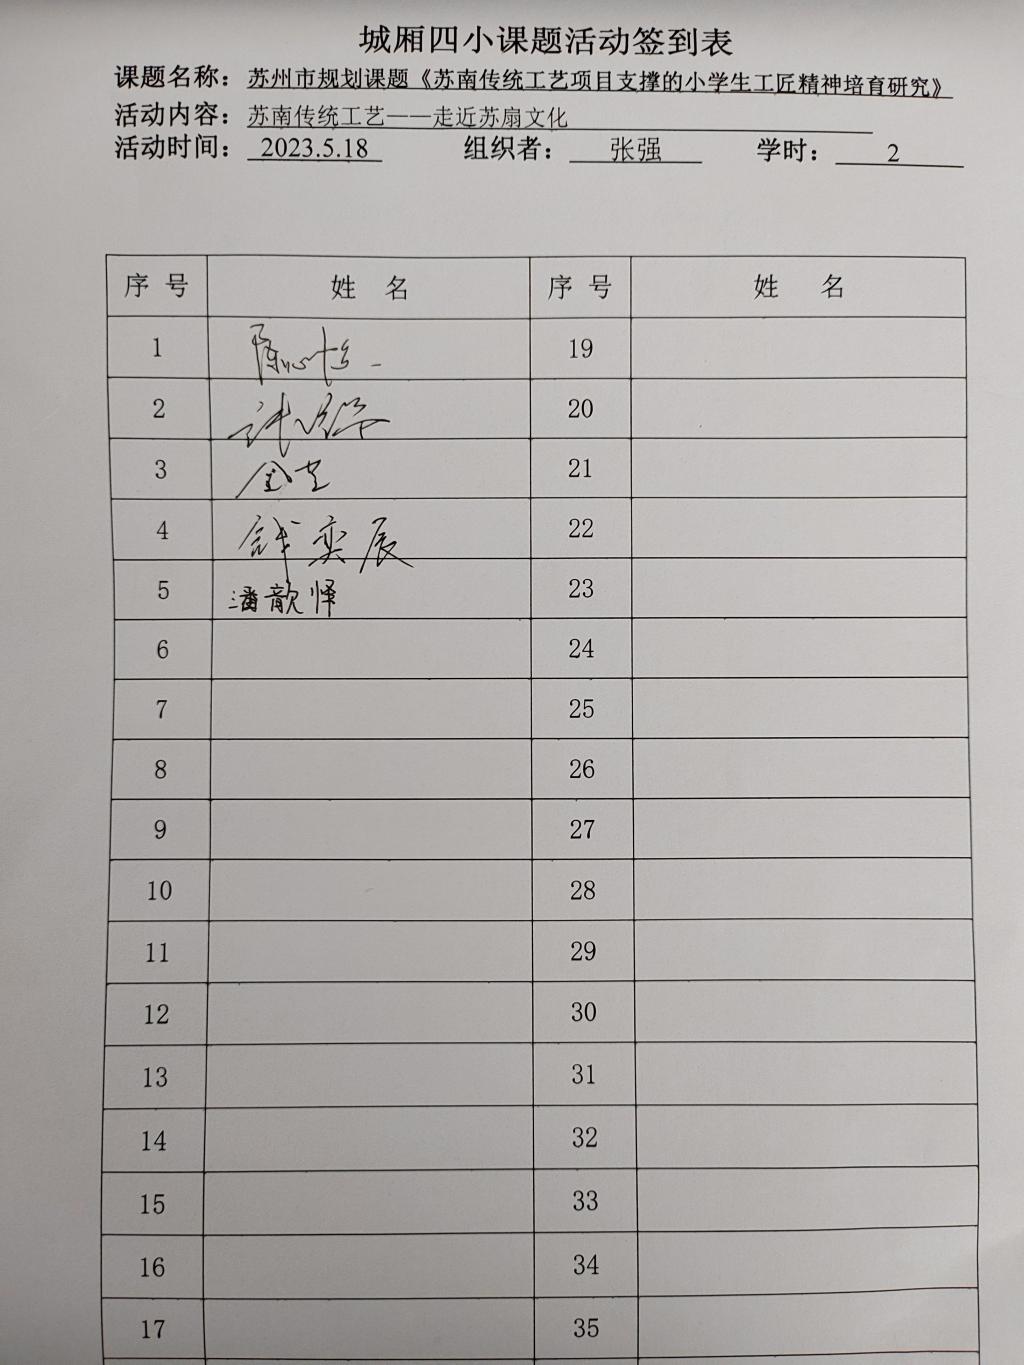 城厢四小课题活动签到表
课题名称：苏州市规划课题《苏南传统工艺项目支撑的小学生工匠精神培育研究》
活动内容：苏南传统工艺——走近苏扇文化
活动时间：2023.5.18 组织者：张强 学时：2
序号 姓名 序号 姓名
1 19
2 20
3 金芝 21
4 钱奕辰 22
5 潘歆怿 23
6 24
7 25
8 26
9 27
10 28
11 29
12 30
13 31
14 32
15 33
16 34
17 35